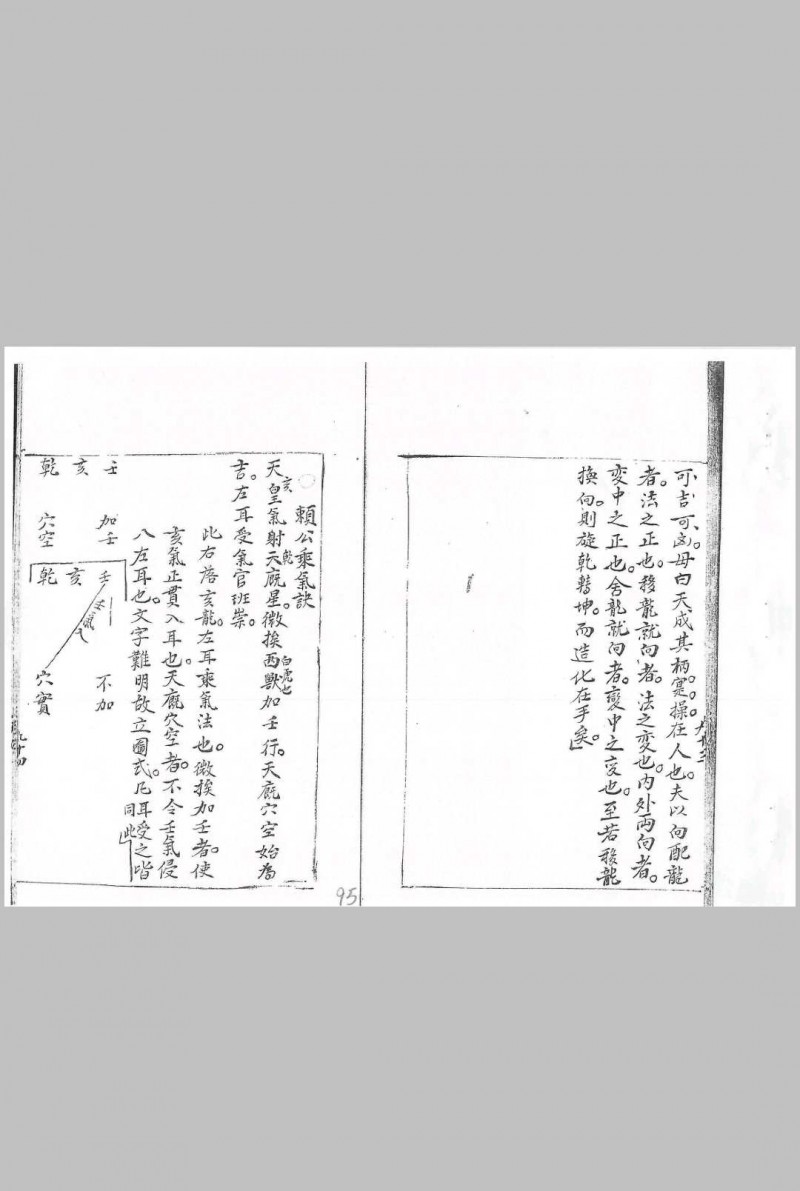 可吉可凶。毋曰天成其柄。寔操在人也。夫以向配龍
者。法之正也。移龍就向者。法之变也。内外兩向者。
変中之正也。舍龍就向者。變中之变也。至若移龍
換向。則旋乾轉坤。而造化在手矣。
賴公乘氣訣
天皇亥氣射天廐乾星。微挨西獸白虎也加壬行。天廐穴空始為
吉。左耳受氣官班崇。
此右落亥龍。左耳乘氣法也。微挨加壬者。使
亥氣正貫入耳也。天廐穴空者。不令壬氣侵
入左耳也。文字難明故立圖式。凡耳受之皆
同此
壬 亥 乾
加壬 穴空
壬 亥 乾
壬氣入
不加 穴實
九十四
95